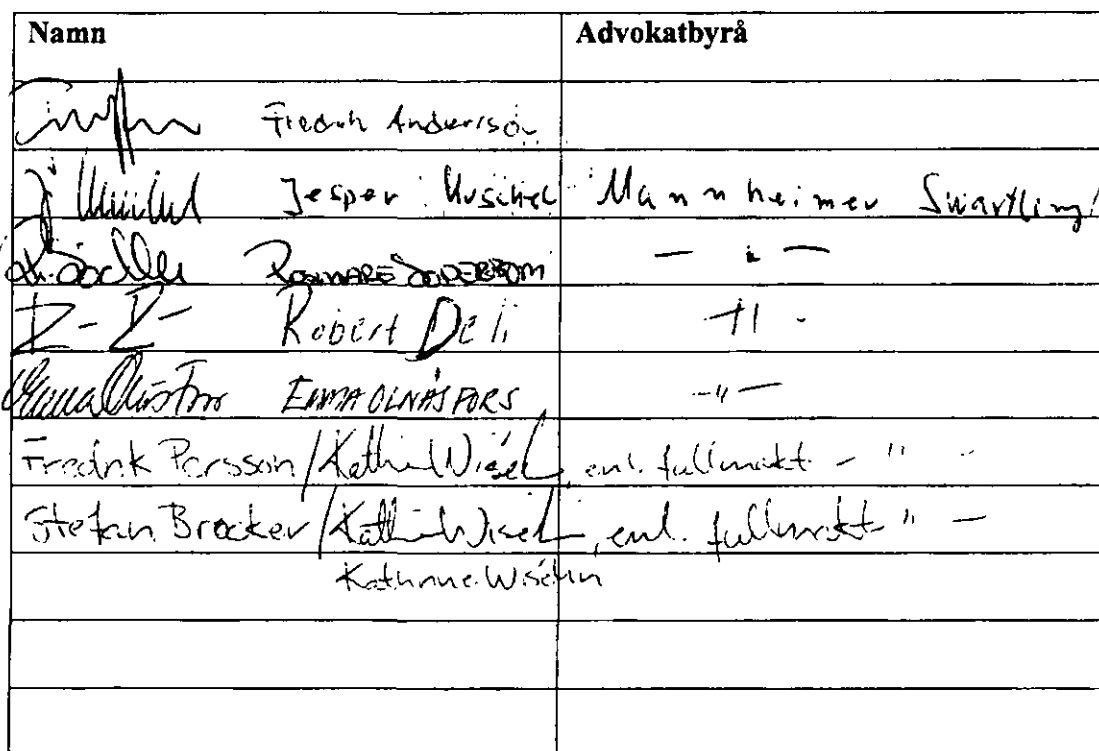 Namn Advokatbyrå
Fredrik Andersson
Jesper Kuschel Mannheimer Swartling
SÖDERBOM - " -
Robert Deli - " -
EMMA OLNÄSFORS - " -
Fredrik Persson / enl. fullmakt - " -
Stefan Brocker / enl. fullmakt - " -